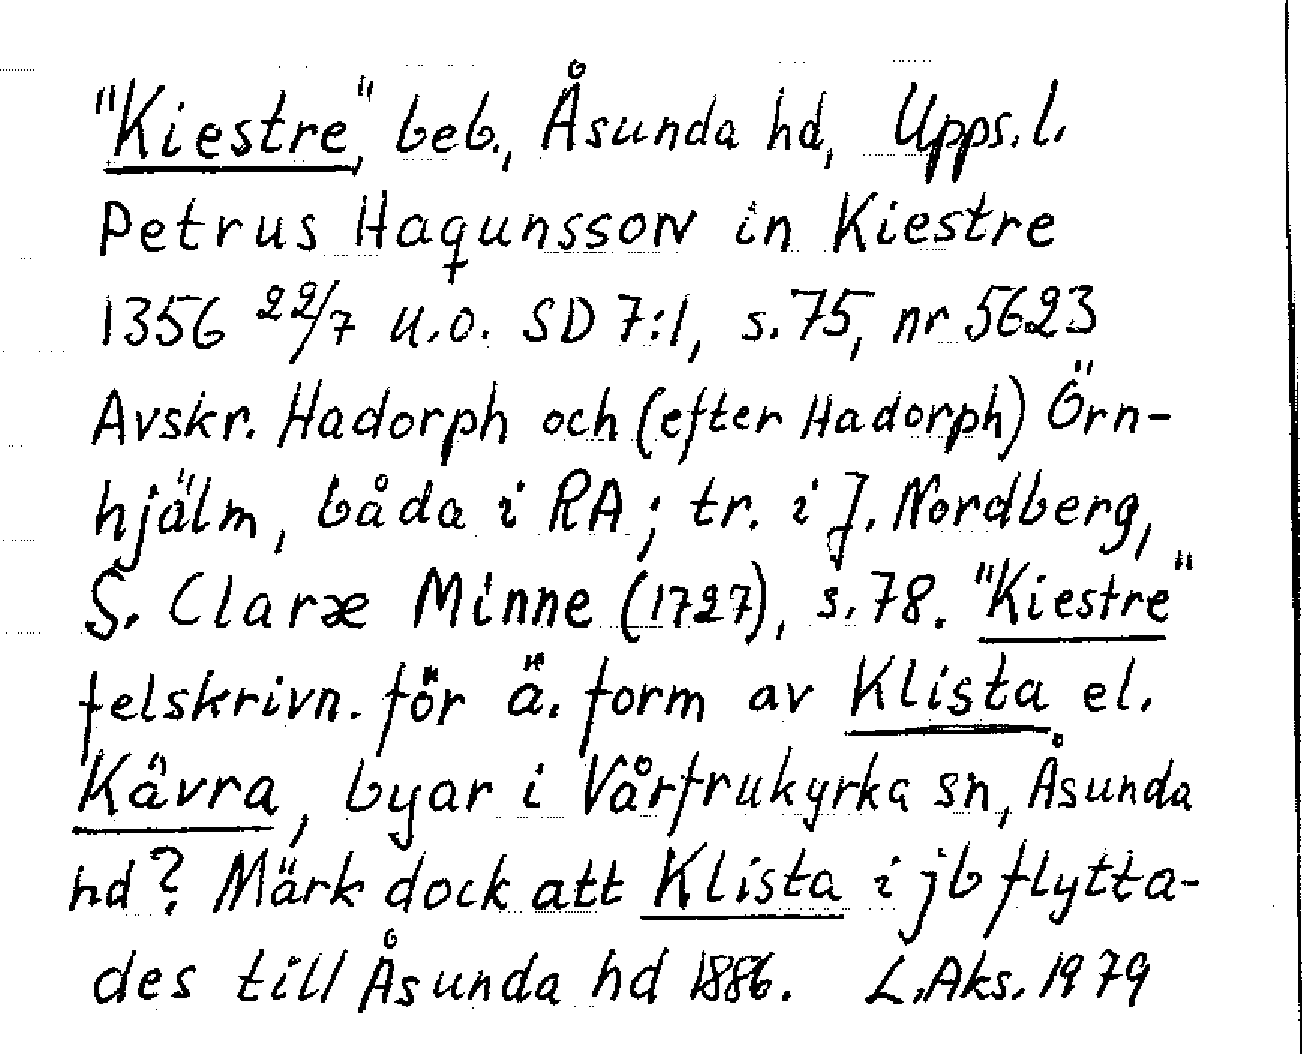 "Kiestre", beb., Åsunda hd, Upps. l.
Petrus Haqunsson in Kiestre
1356 22/7 u.o. SD 7:1, s. 75, nr 5623
Avskr. Hadorph och (efter Hadorph) Örn-
hjälm, båda i RA; tr. i J. Nordberg,
S. Claræ Minne (1727), s. 78. "Kiestre"
felskrivn. för ä. form av Klista el.
Kävra, byar i Vårfrukyrka sn, Åsunda
hd? Märk dock att Klista i jb flytta-
des till Åsunda hd 1886. L. Aks. 1979